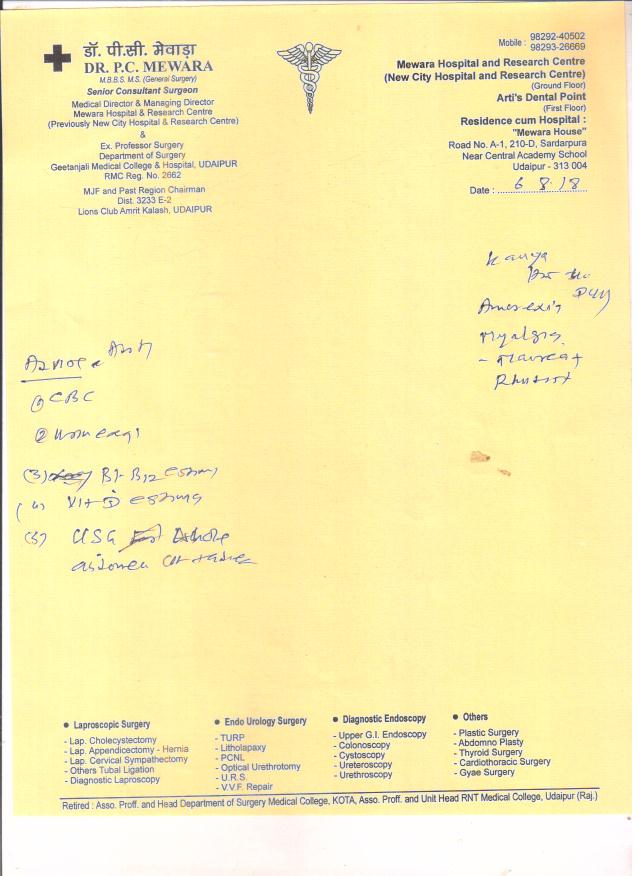 डॉ. पी.सी. मेवाड़ा
DR. P.C. MEWARA
M.B.B.S. M.S. (General Surgery)
Senior Consultant Surgeon
Medical Director & Managing Director
Mewara Hospital & Research Centre
(Previously New City Hospital & Research Centre)
&
Ex. Professor Surgery
Department of Surgery
Geetanjali Medical College & Hospital, UDAIPUR
RMC Reg. No. 2662
MJF and Past Region Chairman
Dist. 3233 E-2
Lions Club Amrit Kalash, UDAIPUR
Mobile : 98292-40502
98293-26669
Mewara Hospital and Research Centre
(New City Hospital and Research Centre)
(Ground Floor)
Arti's Dental Point
(First Floor)
Residence cum Hospital :
"Mewara House"
Road No. A-1, 210-D, Sardarpura
Near Central Academy School
Udaipur - 313 004
Date : 6 8.18
Myalgia
(1) CBC
(3) B12
(4) Vit D
(5) USG whole
● Laproscopic Surgery
- Lap. Cholecystectomy
- Lap. Appendicectomy - Hernia
- Lap. Cervical Sympathectomy
- Others Tubal Ligation
- Diagnostic Laproscopy
● Endo Urology Surgery
- TURP
- Litholapaxy
- PCNL
- Optical Urethrotomy
- U.R.S.
- V.V.F. Repair
● Diagnostic Endoscopy
- Upper G.I. Endoscopy
- Colonoscopy
- Cystoscopy
- Ureteroscopy
- Urethroscopy
● Others
- Plastic Surgery
- Abdomno Plasty
- Thyroid Surgery
- Cardiothoracic Surgery
- Gyae Surgery
Retired : Asso. Proff. and Head Department of Surgery Medical College, KOTA, Asso. Proff. and Unit Head RNT Medical College, Udaipur (Raj.)